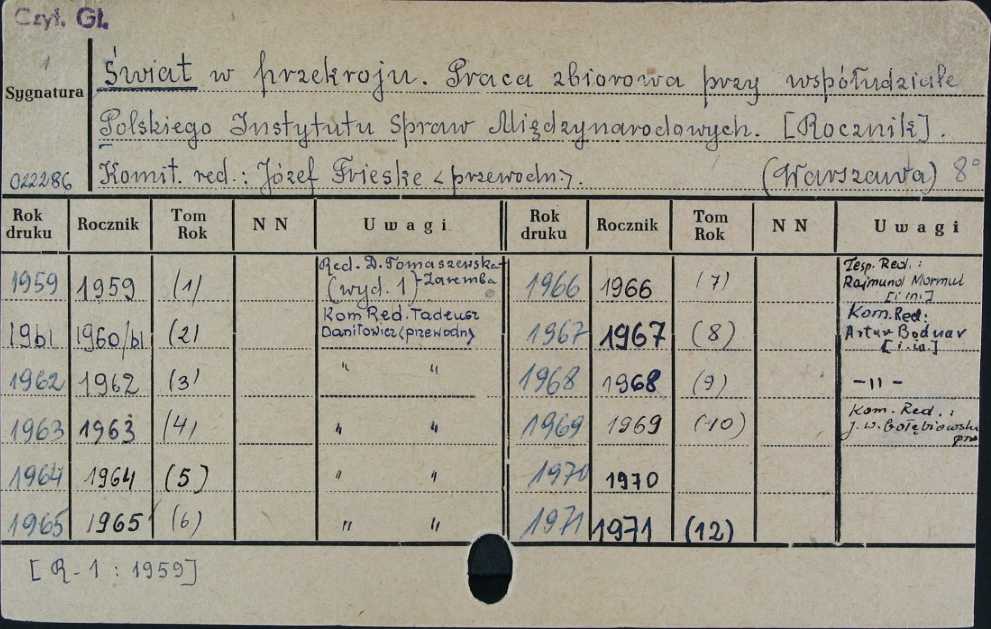 Czyt. Gł.
1
Sygnatura
022286
Świat w przekroju. Praca zbiorowa przy współudziale
Polskiego Instytutu Spraw Międzynarodowych. [Rocznik].
Komit. red.: Józef Frieske <przewodn.>. (Warszawa) 8°
Rok druku Rocznik Tom Rok N N Uwagi Rok druku Rocznik Tom Rok N N Uwagi
1959 1959 (1) Red. D. Tomaszewska-Zaremba (wyd. 1) 1966 1966 (7) Zesp. Red.: Rajmund Mormul [i in.]
1961 1960/61 (2) Kom Red. Tadeusz Daniłowicz (przewodn) 1967 1967 (8) Kom. Red: Artur Bodnar [i in.]
1962 1962 (3) " " 1968 1968 (9) -"-
1963 1963 (4) " " 1969 1969 (10) Kom. Red.: J. W. Gołębiowski
1964 1964 (5) " " 1970 1970
1965 1965 (6) " " 1971 1971 (12)
[R-1: 1959]